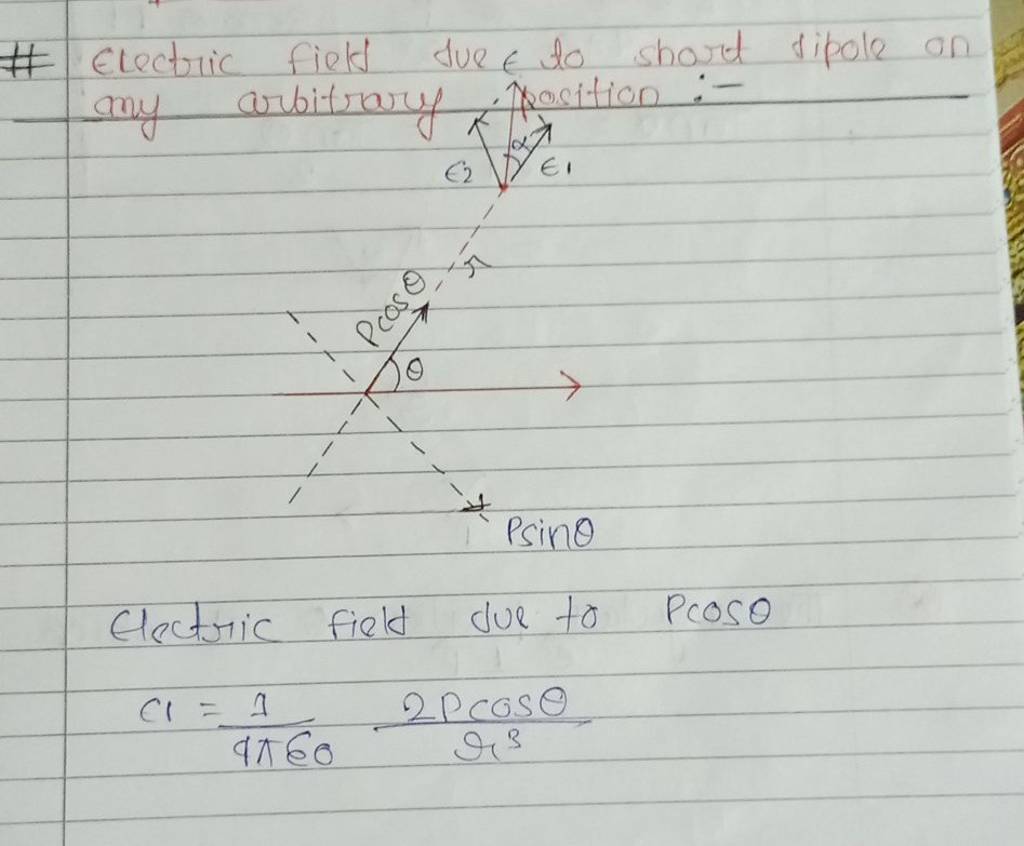 # Electric field due to short dipole on
any arbitrary position :-
E
α
E2
E1
r
Pcosθ
θ
Psinθ
Electric field due to Pcosθ
E1 = 1/4πε0 2Pcosθ/r³